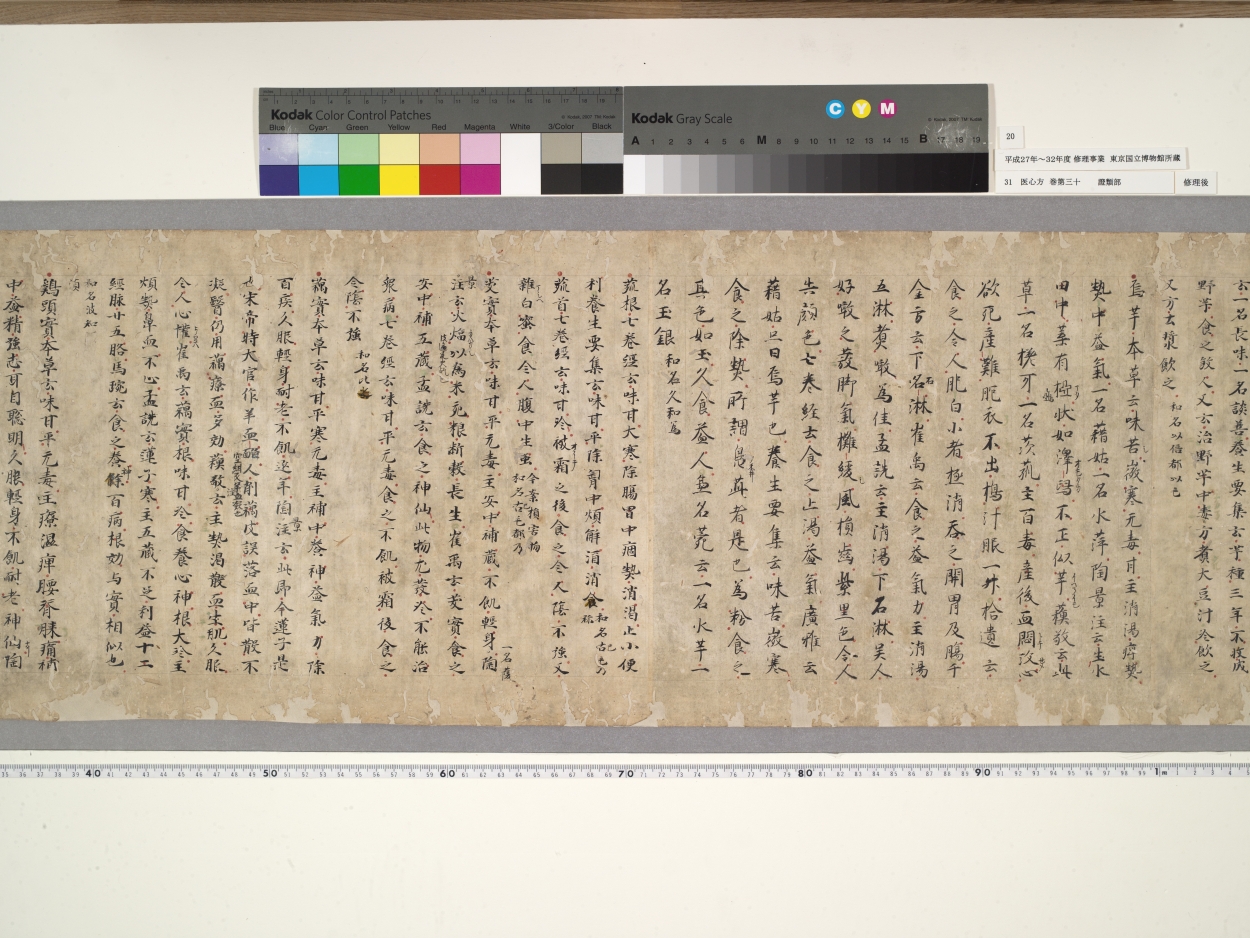 Kodak Color Control Patches
© Kodak, 2007 TM: Kodak
Blue Cyan Green Yellow Red Magenta White 3/Color Black
Kodak Gray Scale
C Y M
© Kodak, 2007 TM: Kodak
A 1 2 3 4 5 6 M 8 9 10 11 12 13 14 15 B 17 18 19
20
平成27年～32年度 修理事業 東京国立博物館所蔵
31 医心方 巻第三十 證類部
修理後
云二名長味一名談善養生要集云芋種三年不收成
野芋食之殺人又云治野芋中毒方煮大豆汁冷飲之
又方云漿飲之 和名以倍都以毛
烏芋本草云味苦微寒无毒甘主消渇痺熱
熱中益氣一名藉姑一名水萍陶景注云生水
田中葉有椏状如澤瀉不正似芋蘓敬云此
草一名槎牙一名茨菰主百毒産後血悶攻心
欲死産難胞衣不出搗汁服一升拾遺云
食之令人肥白小者極消呑之開胃及腸千
金方云下石淋崔禹云食之益氣力主消渇
五淋煮噉為佳孟詵云主消渇下石淋呉人
好噉之發脚氣癱緩風損齒紫黒色令人
失顔色七巻經云食之止渇益氣廣雅云
藉姑亦曰烏芋也養生要集云味苦微寒
食之除熱所謂鳧茈者是也為粉食之
其色如玉久食益人兼名苑云一名水芋一
名玉銀 和名久和為
菰根七巻經云味甘大寒除腸胃中痼熱消渇止小便
利養生要集云味甘平除胸中煩解酒消食 和名古毛乃祢
菰首七巻經云味甘冷被霜之後食之令人陰不強又
雜白蜜食令人腹中生虫
芰實本草云味甘平无毒主安中補蔵不飢輕身陶
注云火㷔以為米充粮断穀長生崔禹云芰實食之
安中補五蔵孟詵云食之神仙此物尤發冷不能治
衆病七巻經云味甘平无毒食之不飢被霜後食之
令陰不強 和名比之
藕實本草云味甘平寒无毒主補中養神益氣力除
百疾久服輕身耐老不飢延年陶景注云此即今蓮子是
也宋帝時大官作羊血人削藕皮誤落血中皆散不
凝醫仍用藕療血多効蘓敬云主熱渇散血生肌久服
令人心懽崔禹云藕實根味甘冷食養心神根大冷主
煩熱鼻血不止孟詵云蓮子寒主五蔵不足利益十二
經脉廿五胳馬琬云食之養餘百病根効与實相似也
和名波知須
鶏頭實本草云味甘平无毒主療濕痺腰脊膝痛補
中益精強志耳目聡明久服輕身不飢耐老神仙陶
40 50 60 70 80 90 1m